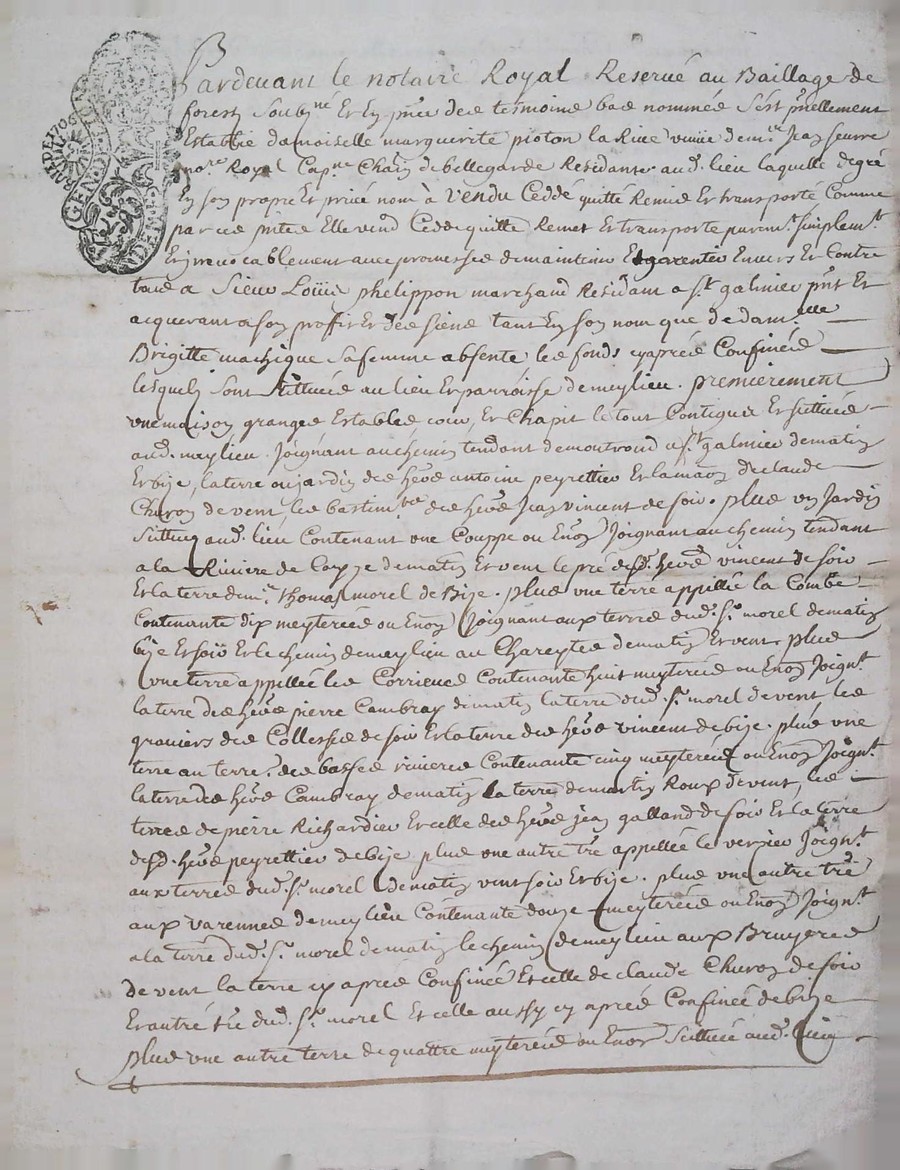 Pardevant le notaire Royal Reservé au Baillage de
forest Soub.ne Et En pnce des tesmoins bas nommés S'est pnellement
Establie damoiselle marguerite pioton la Rive veuve de m.re Jean seurre
no.re Royal Cap.ne Chān de bellegarde Residante aud. lieu laquelle de gré
En son propre Et privé nom à Vendu Ceddé quitté Remis Et transporté Comme
par ces pntes Elle vend Cedde quitte Remet Et transporte purem.t simplem.t
Et irrevocablement avec promesses de maintenir Et garentir Envers Et Contre
tous a Sieur Loüis phelippon marchand Residant a S.t galmier pnt Et
acquerant a son proffit Et des siens tant En son nom que de dam.lle
Brigitte machique sa femme absente les fonds cy aprés Confinés
lesquels sont scittués au lieu Et parroisse de meylieu. premierement
vne maison granges Estables cour, Et Chapit le tout Contigus Et scittués
aud. meylieu. Joignant au chemin tendant de montrond a S.t galmier de matin
Et bize, la terre ou jardin des hers antoine peyrettier Et la maison de claude
Chavon de vent, les bastim.ts des hers Jean vincent de soir. plus vn Jardin
Scittué aud. lieu Contenant vne Couppe ou Enon Joignant au chemin tendant
a la Riviere de Coyze de matin Et vent le pré desd. hers vincent de soir
Et la terre de m.r thomas morel de Bize. plus vne terre appellée la Combe
Contenante dix meyterées ou Enon Joignant aux terres dud. S.r morel de matin
bize Et soir Et le chemin de meylieu au Chareytes de matin Et vent. plus
vne terre appellée les Corriers Contenante huit meyterées ou Enon Joign.t
la terre des hers pierre Cambray de matin la terre dud. S.r morel de vent les
graviers des Collesses de soir Et la terre des hers vincent de bize. plus vne
terre au terre.r des basses rivieres Contenante cinq meyterées ou Enon Joign.t
la terre des hers Cambray de matin la terre de martin Roux de vent, les
terres de pierre Richardier Et celle des hers jean galland de soir Et la terre
desd. hers peyrettier de bize plus vne autre tre appellée le verpier Joign.t
aux terres dud. S.r morel de matin vent soir Et bize. plus vne autre tre
aux varennes de meylieu Contenante douze meyterées ou Enon Joign.t
a la terre dud. S.r morel de matin le chemin de meylieu aux Bruyeres
de vent la terre cy aprés Confinée Et celle de claude Chavon de soir
Et autre tre dud. S.r morel Et celle aussy cy aprés Confinée de bize
plus vne autre terre de quattre meyterées ou Enon Scittuée aud. lieu